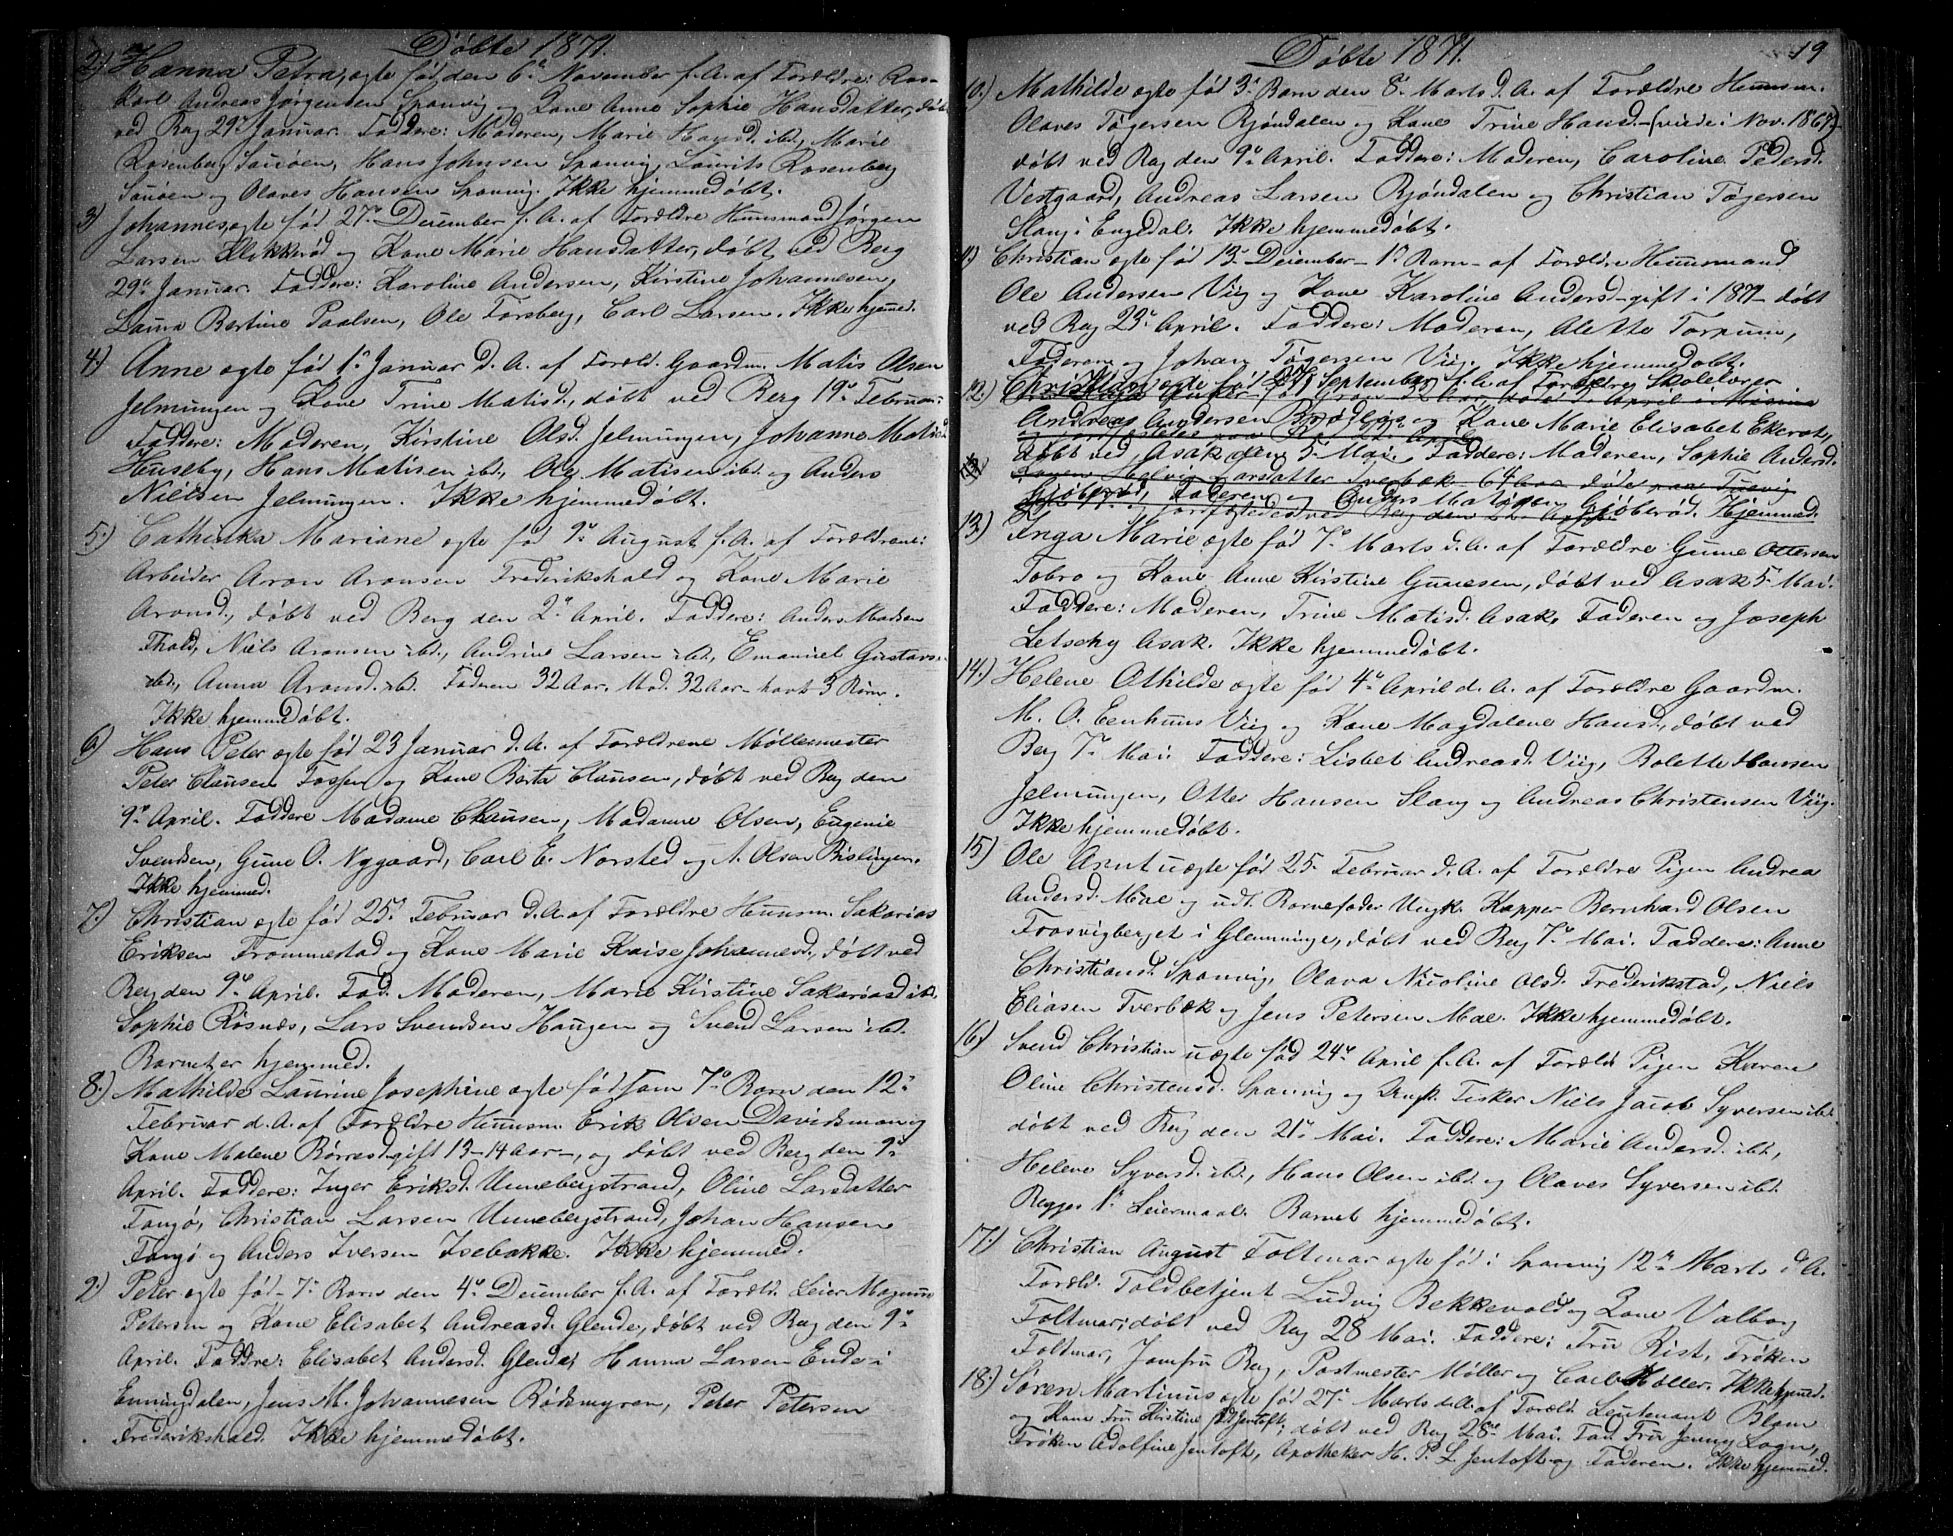 Døbte 1871.
2.) Hanna Petra, ægte fød den 6te November f. A. af Forældre: Ros-
Karl Andreas Jørgensen Sponvig og Kone Anne Sophie Hansdatter, døbt
ved Berg 29de Januar. Faddere: Moderen, Marie Hansd. ibd., Marie
Rosenberg Sauøen, Hans Johnsen Sponvig, Laurits Rosenberg
Sauøen og Olaves Hansen Sponvig. Ikke hjemmedøbt.
3.) Johannes, ægte fød 27de December f. A. af Forældre Huusmand Jørgen
Larsen Klekkerød og Kone Marie Hansdatter, døbt ved Berg
29de Januar. Faddere: Karoline Andersen, Kirstine Johannesen,
Laura Bertine Paalsen, Ole Forsberg, Carl Larsen. Ikke hjemmed.
4.) Anne ægte fød 1ste Januar d. A. af Foræld. Gaardm. Matis Olsen
Jelmungen og Kone Trine Matisd., døbt ved Berg 19de Februar.
Faddere: Moderen, Kirstine Olsd. Jelmungen, Johanne Matisd.
Huseby, Hans Matisen ibd., Ole Matisen ibd. og Anders
Nielsen Jelmungen. Ikke hjemmedøbt.
5.) Cathinka Mariane ægte fød 9de August f. A. af Forældrene:
Arbeider Aron Aronsen Frederikshald og Kone Marie
Aronsd., døbt ved Berg den 2den April. Faddere: Anders Madsen
Fhald, Niels Aronsen ibd., Andrine Larsen ibd., Emanuel Gustavs.
ibd., Anna Aronsd. ibd. Faderen 32 Aar. Mod. 32 Aar – havt 3 Børn.
Ikke hjemmedøbt.
6.) Hans Peter ægte fød 23 Januar d. A. af Forældrene Møllemester
Peter Clausen Fossen og Kone Berta Clausen, døbt ved Berg den
9de April. Faddere Madame Clausen, Madame Olsen, Eugenie
Svendsen, Gune O. Nygaard, Carl E. Norsted og A. Olsen Bislingen.
Ikke hjemmed.
7.) Christian ægte fød 25de Februar d. A. af Forældre Huusm. Sakarias
Eriksen Trommestad og Kone Marie Kaise Johannesd., døbt ved
Berg den 9de April. Fad. Moderen, Marie Kirstine Sakariasd. ibd.
Sophie Røsnæs, Lars Svendsen Haugen og Svend Larsen ibd.
Barnet er hjemmed.
8.) Mathilde Laurine Josephine ægte fød som 7de Barn den 12te
Februar d. A. af Forældre Huusm. Erik Olsen Davidsmon og
Kone Malene Børresd. – gift 13–14 Aar –, og døbt ved Berg den 9de
April. Faddere: Inger Eriksd. Unnebergstrand, Oline Larsdatter
Tangø, Christian Larsen Unnebergstrand, Johan Hansen
Tangø og Anders Iversen Isebakke. Ikke hjemmed.
9.) Peter ægte fød – 7de Barn den 4de December f. A. af Foræld. Leier Magnus
Petersen og Kone Elisabet Andreasd. Glende, døbt ved Berg den 9de
April. Faddre: Elisabet Andersd. Glende, Hanna Larsen Ende i
Enningdalen, Jens M. Johannesen Rødsmyren, Peter Petersen
Frederikshald. Ikke hjemmedøbt.
Døbte 1871.
19
10.) Mathilde ægte fød 3de Barn den 8de Marts d. A. af Forældre Huusm.
Olaves Tøgersen Bjøndalen og Kone Trine Hansd. – (viede i Nov. 1867) –
døbt ved Berg den 9de April. Faddere: Moderen, Caroline Pedersd.
Vestgaard, Andreas Larsen Bjøndalen og Christian Tøgersen
Slang i Engdal. Ikke hjemmedøbt.
11.) Christian ægte fød 13de December – 1ste Barn – af Forældre Huusmand
Ole Andersen Viig og Kone Karoline Andersd. – gift i 1871 – døbt
ved Berg 23de April. Faddere: Moderen, Alette Torpum,
Faderen og Johan Tøgersen Viig. Ikke hjemmedøbt.
12.) Christian ægte fød September f. A. af Forældre Skolelærer
Andreas Andersen og Kone Marie Elisabet Ekerot,
døbt ved Asak den 5te Mai. Faddere: Moderen, Sophie Andersd.
Gjøberød, Faderen og Anders Matisen Gjøberød. Hjemmed.
13.) Inga Marie ægte fød 7de Marts d. A. af Forældre Gune Ottersen
Tobro og Kone Anne Kirstine Gunesen, døbt ved Asak 5te Mai.
Faddere: Moderen, Trine Matisd. Asak, Faderen og Joseph
Letschy Asak. Ikke hjemmedøbt.
14.) Helene Othilde ægte fød 4de April d. A. af Forældre Gaardm.
M. O. Eenhuus Viig og Kone Magdalene Hansd., døbt ved
Berg 7de Mai. Faddere: Lisbet Andreasd. Viig, Bolette Hansen
Jelmungen, Otter Hansen Slang og Andreas Christensen Viig.
Ikke hjemmedøbt.
15.) Ole Arnt uægte fød 25de Februar d. A. af Forældre Pigen Andrea
Andersd. Mae og udl. Barnefader Ungk. Kapper Bernhard Olsen
Traasvigberget i Glemminge, døbt ved Berg 7de Mai. Faddere: Anne
Christiansd. Sponvig, Olava Nicoline Olsd. Frederikstad, Niels
Eliasen Tverbæk og Jens Petersen Mae. Ikke hjemmedøbt.
16.) Svend Christian uægte fød 24de April f. A. af Foræld. Pigen Karen
Oline Christensd. Sponvig og Ungk. Fisker Niels Jacob Syversen ibd.
døbt ved Berg den 21de Mai. Faddere: Marie Andersd. ibd.,
Helene Syversd. ibd., Hans Olsen ibd. og Olaves Syversen ibd.
Begges 1ste Leiermaal. Barnet hjemmedøbt.
17.) Christian August Foltmar ægte fød i Sponvig 12te Marts d. A.
Foræld. Toldbetjent Ludvig Bekkevold og Kone Valborg
Foltmar, døbt ved Berg 28 Mai. Faddere: Fru Rist, Frøken
Foltmar, Jomfru Berg, Postmester Møller og Carl Møller. Ikke hjemmed.
18.) Søren Martinus ægte fød 27de Marts d. A. af Foræld. Leutenant Blom
og Kone Fru Kirstine Jentoft, døbt ved Berg 28de Mai. Fad. Fru Jenny Sogn,
Frøken Adolfine Jentoft, Apotheker H. P. L. Jentoft og Faderen. Ikke hjemmed.